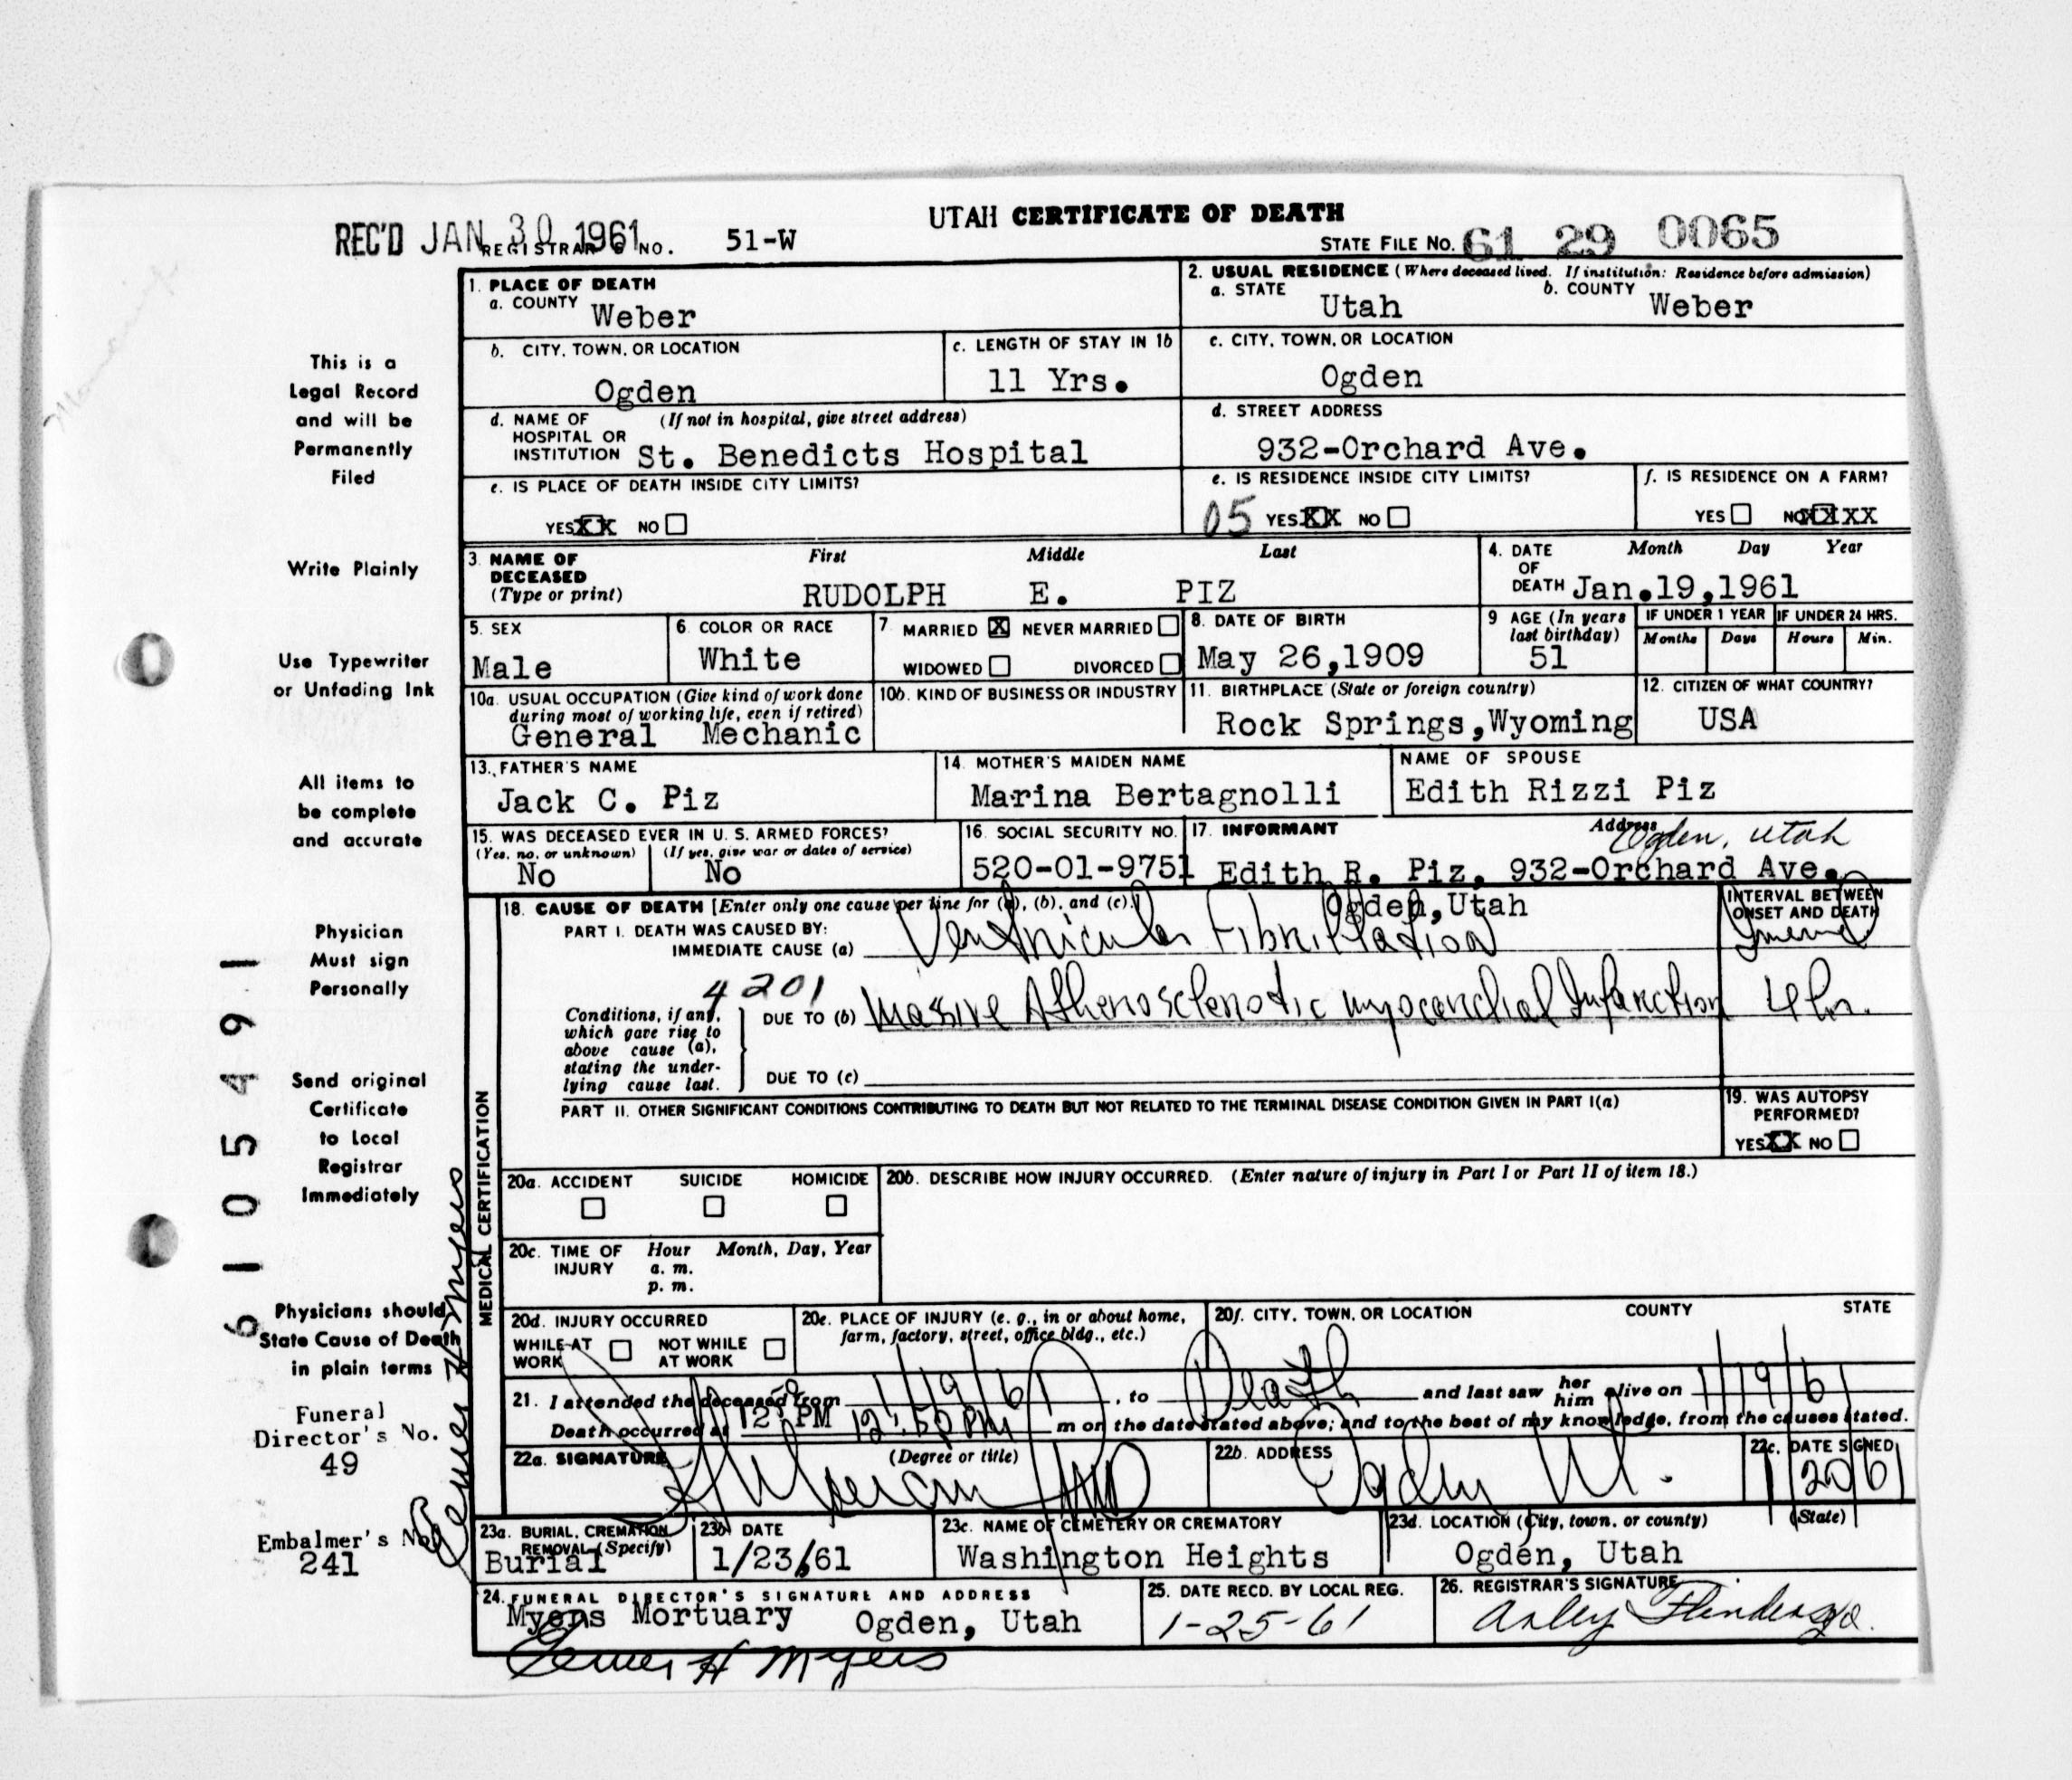 UTAH CERTIFICATE OF DEATH
REC'D JAN 30 1961
REGISTRAR'S NO. 51-W
STATE FILE NO. 61 29 0065
1. PLACE OF DEATH
a. COUNTY
Weber
2. USUAL RESIDENCE (Where deceased lived. If institution: Residence before admission)
a. STATE
Utah
b. COUNTY
Weber
b. CITY, TOWN, OR LOCATION
Ogden
c. LENGTH OF STAY IN 1b
11 Yrs.
c. CITY, TOWN, OR LOCATION
Ogden
d. NAME OF (If not in hospital, give street address)
HOSPITAL OR
INSTITUTION St. Benedicts Hospital
d. STREET ADDRESS
932-Orchard Ave.
e. IS PLACE OF DEATH INSIDE CITY LIMITS?
YES XX NO
e. IS RESIDENCE INSIDE CITY LIMITS?
05 YES XX NO
f. IS RESIDENCE ON A FARM?
YES NO XXXX
3. NAME OF
DECEASED
(Type or print)
First Middle Last
RUDOLPH E. PIZ
4. DATE
OF
DEATH
Month Day Year
Jan.19,1961
5. SEX
Male
6. COLOR OR RACE
White
7. MARRIED X NEVER MARRIED
WIDOWED DIVORCED
8. DATE OF BIRTH
May 26,1909
9 AGE (In years
last birthday)
51
IF UNDER 1 YEAR
Months Days
IF UNDER 24 HRS.
Hours Min.
10a. USUAL OCCUPATION (Give kind of work done
during most of working life, even if retired)
General Mechanic
10b. KIND OF BUSINESS OR INDUSTRY
11. BIRTHPLACE (State or foreign country)
Rock Springs,Wyoming
12. CITIZEN OF WHAT COUNTRY?
USA
13. FATHER'S NAME
Jack C. Piz
14. MOTHER'S MAIDEN NAME
Marina Bertagnolli
NAME OF SPOUSE
Edith Rizzi Piz
15. WAS DECEASED EVER IN U. S. ARMED FORCES?
(Yes, no, or unknown) (If yes, give war or dates of service)
No No
16. SOCIAL SECURITY NO.
520-01-9751
17. INFORMANT Address
Ogden, Utah
Edith R. Piz, 932-Orchard Ave.
Ogden,Utah
MEDICAL CERTIFICATION
18. CAUSE OF DEATH [Enter only one cause per line for (a), (b), and (c).]
PART I. DEATH WAS CAUSED BY:
IMMEDIATE CAUSE (a) Ventricular Fibrillation
INTERVAL BETWEEN
ONSET AND DEATH
4201
Conditions, if any,
which gave rise to
above cause (a),
stating the under-
lying cause last.
DUE TO (b) Massive Atherosclerotic myocardial Infarction 4 hr.
DUE TO (c)
PART II. OTHER SIGNIFICANT CONDITIONS CONTRIBUTING TO DEATH BUT NOT RELATED TO THE TERMINAL DISEASE CONDITION GIVEN IN PART I(a)
19. WAS AUTOPSY
PERFORMED?
YES XX NO
20a. ACCIDENT SUICIDE HOMICIDE
20b. DESCRIBE HOW INJURY OCCURRED. (Enter nature of injury in Part I or Part II of item 18.)
20c. TIME OF
INJURY
Hour Month, Day, Year
a. m.
p. m.
20d. INJURY OCCURRED
WHILE AT
WORK
NOT WHILE
AT WORK
20e. PLACE OF INJURY (e. g., in or about home,
farm, factory, street, office bldg., etc.)
20f. CITY, TOWN, OR LOCATION COUNTY STATE
21. I attended the deceased from 1/19/61, to Death and last saw her him alive on 1/19/61
Death occurred at 12:50 PM 12:50 PM m on the date stated above; and to the best of my knowledge, from the causes stated.
22a. SIGNATURE (Degree or title)
MD
22b. ADDRESS
Ogden Ut.
22c. DATE SIGNED
1/20/61
23a. BURIAL, CREMATION,
REMOVAL (Specify)
Burial
23b DATE
1/23/61
23c. NAME OF CEMETERY OR CREMATORY
Washington Heights
23d. LOCATION (City, town, or county) (State)
Ogden, Utah
24. FUNERAL DIRECTOR'S SIGNATURE AND ADDRESS
Myers Mortuary Ogden, Utah
H Myers
25. DATE RECD. BY LOCAL REG.
1-25-61
26. REGISTRAR'S SIGNATURE
This is a
Legal Record
and will be
Permanently
Filed
Write Plainly
Use Typewriter
or Unfading Ink
All items to
be complete
and accurate
Physician
Must sign
Personally
Send original
Certificate
to Local
Registrar
Immediately
Physicians should
State Cause of Death
in plain terms
Funeral
Director's No.
49
Embalmer's No.
241
H Myers
6105491